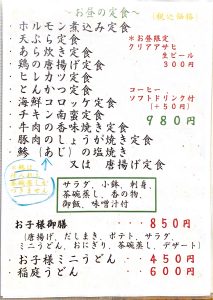 ～お昼の定食～
(税込価格)
・ホルモン煮込み定食
・天ぷら定食
＊お昼限定
・あら炊き定食
クリアアサヒ
生ビール
・鶏の唐揚げ定食
300円
・ヒレカツ定食
・とんかつ定食
コーヒー
ソフトドリンク付
・海鮮コロッケ定食
(+50円)
・チキン南蛮定食
980円
・牛肉の香味焼き定食
・豚肉のしょうが焼き定食
・鯵(あじ)の塩焼き
又は 唐揚げ定食
サラダ、小鉢、刺身、
茶碗蒸し、香の物、
御飯、味噌汁付
お子様御膳 ・・・850円
(唐揚げ、だしまき、ポテト、サラダ、
ミニうどん、おにぎり、茶碗蒸し、デザート)
お子様ミニうどん ・・・450円
稲庭うどん ・・・600円